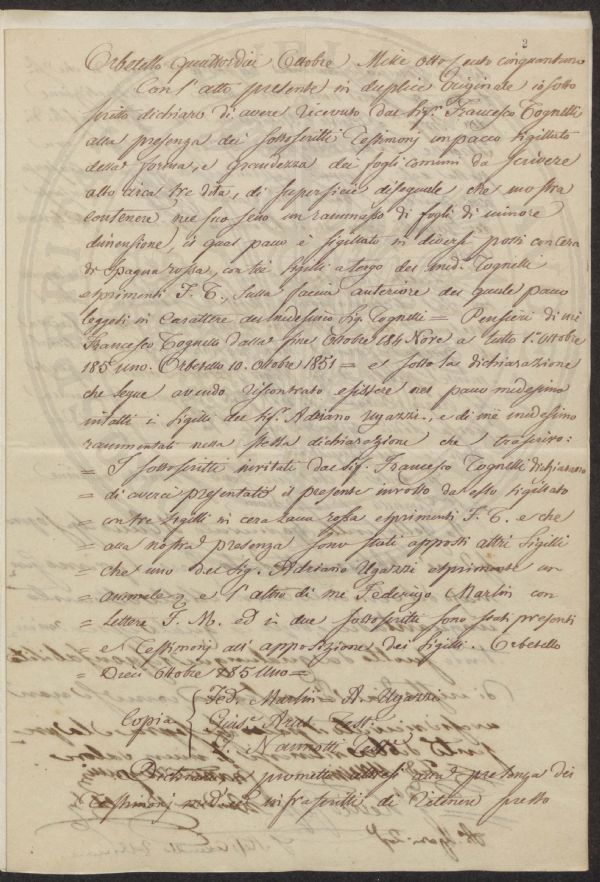 2
Orbetello quattordici Ottobre Mille otto cento cinquantuno
Con l'atto presente in duplice Originale io sotto
scritto dichiaro di avere ricevuto dal Sigr. Francesco Tognelli
alla presenza dei Sottoscritti Testimonj un pacco sigillato
della forma, e grandezza dei fogli comuni da scrivere
alto circa tre dita, di superficie diseguale che mostra
contenere nel suo seno un rammasso di fogli di minore
dimensione, il qual pacco è sigillato in diversi posti con cera
di Spagna rossa, con tre sigilli a tergo del med. Tognelli
esprimenti F. T., sulla faccia anteriore del quale pacco
leggesi in carattere del medesimo Sig. Tognelli = Pensieri di me
Francesco Tognelli dalla fine Ottobre 184 Nove a tutto 1° Ottobre
185 uno. Orbetello 10. Ottobre 1851 = e sotto la dichiarazione
che segue avendo riscontrato esistere nel pacco medesimo
intatti i sigilli del Sigr. Adriano Ugazzi, e di me medesimo
rammentati nella stessa dichiarazione che trascrivo:
= I sottoscritti invitati dal Sig. Francesco Tognelli dichiarano
= di averci presentato il presente involto da esso sigillato
= con tre sigilli in cera lacca rossa esprimenti F. T. e che
= alla nostra presenza sono stati apposti altri sigilli
= che uno del Sig. Adriano Ugazzi esprimente un
= e l'altro di me Federigo Martin con
= Lettere F. M. ed i due sottoscritti sono stati presenti
= e Testimonj all'apposizione dei Sigilli. Orbetello
= Dieci Ottobre 185 Uno =
Fed. Martin = A. Ugazzi
Copia Test.
Nannotti Test.
Dichiaro e prometto altresì alla presenza dei
Testimonj infrascritti di ritenere presso